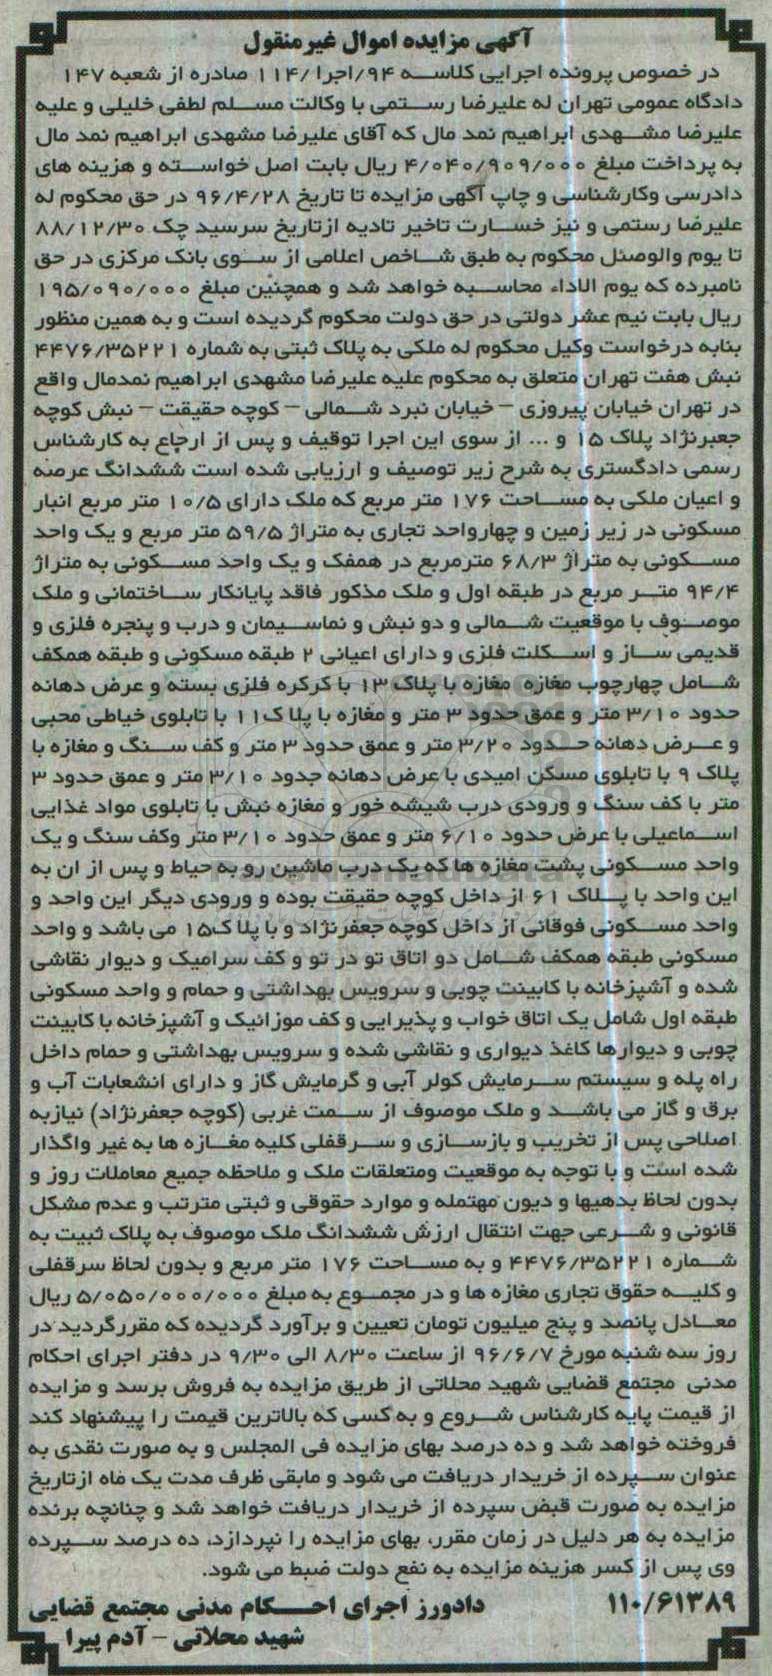 آگهی مزایده اموال غیرمنقول
در خصوص پرونده اجرایی کلاسه ۹۴/اجرا /۱۱۴ صادره از شعبه ۱۴۷
دادگاه عمومی تهران له علیرضا رستمی با وکالت مسلم لطفی خلیلی و علیه
علیرضا مشهدی ابراهیم نمد مال که آقای علیرضا مشهدی ابراهیم نمد مال
به پرداخت مبلغ ۴/۰۴۰/۹۰۹/۰۰۰ ریال بابت اصل خواسته و هزینه های
دادرسی وکارشناسی و چاپ آگهی مزایده تا تاریخ ۹۶/۴/۲۸ در حق محکوم له
علیرضا رستمی و نیز خسارت تاخیر تادیه ازتاریخ سرسید چک ۸۸/۱۲/۳۰
تا یوم والوصئل محکوم به طبق شاخص اعلامی از سوی بانک مرکزی در حق
نامبرده که یوم الاداء محاسبه خواهد شد و همچنین مبلغ ۱۹۵/۰۹۰/۰۰۰
ریال بابت نیم عشر دولتی در حق دولت محکوم گردیده است و به همین منظور
بنابه درخواست وکیل محکوم له ملکی به پلاک ثبتی به شماره ۴۴۷۶/۳۵۲۲۱
نبش هفت تهران متعلق به محکوم علیه علیرضا مشهدی ابراهیم نمدمال واقع
در تهران خیابان پیروزی – خیابان نبرد شمالی – کوچه حقیقت – نبش کوچه
جعبرنژاد پلاک ۱۵ و ... از سوی این اجرا توقیف و پس از ارجاع به کارشناس
رسمی دادگستری به شرح زیر توصیف و ارزیابی شده است ششدانگ عرصه
و اعیان ملکی به مساحت ۱۷۶ متر مربع که ملک دارای ۱۰/۵ متر مربع انبار
مسکونی در زیر زمین و چهارواحد تجاری به متراژ ۵۹/۵ متر مربع و یک واحد
مسکونی به متراژ ۶۸/۳ مترمربع در همفک و یک واحد مسکونی به متراژ
۹۴/۴ متر مربع در طبقه اول و ملک مذکور فاقد پایانکار ساختمانی و ملک
موصوف با موقعیت شمالی و دو نبش و نماسیمان و درب و پنجره فلزی و
قدیمی ساز و اسکلت فلزی و دارای اعیانی ۲ طبقه مسکونی و طبقه همکف
شامل چهارچوب مغازه مغازه با پلاک ۱۳ با کرکره فلزی بسته و عرض دهانه
حدود ۳/۱۰ متر و عمق حدود ۳ متر و مغازه با پلا ک۱۱ با تابلوی خیاطی محبی
و عرض دهانه حدود ۳/۲۰ متر و عمق حدود ۳ متر و کف سنگ و مغازه با
پلاک ۹ با تابلوی مسکن امیدی با عرض دهانه حدود ۳/۱۰ متر و عمق حدود ۳
متر با کف سنگ و ورودی درب شیشه خور و مغازه نبش با تابلوی مواد غذایی
اسماعیلی با عرض حدود ۶/۱۰ متر و عمق حدود ۳/۱۰ متر وکف سنگ و یک
واحد مسکونی پشت مغازه ها که یک درب ماشین رو به حیاط و پس از ان به
این واحد با پلاک ۶۱ از داخل کوچه حقیقت بوده و ورودی دیگر این واحد و
واحد مسکونی فوقانی از داخل کوچه جعفرنژاد و با پلا ک۱۵ می باشد و واحد
مسکونی طبقه همکف شامل دو اتاق تو در تو و کف سرامیک و دیوار نقاشی
شده و آشپزخانه با کابینت چوبی و سرویس بهداشتی و حمام و واحد مسکونی
طبقه اول شامل یک اتاق خواب و پذیرایی و کف موزائیک و آشپزخانه با کابینت
چوبی و دیوارها کاغذ دیواری و نقاشی شده و سرویس بهداشتی و حمام داخل
راه پله و سیستم سرمایش کولر آبی و گرمایش گاز و دارای انشعابات آب و
برق و گاز می باشد و ملک موصوف از سمت غربی (کوچه جعفرنژاد) نیازبه
اصلاحی پس از تخریب و بازسازی و سرقفلی کلیه مغازه ها به غیر واگذار
شده است و با توجه به موقعیت ومتعلقات ملک و ملاحظه جمیع معاملات روز و
بدون لحاظ بدهیها و دیون مهتمله و موارد حقوقی و ثبتی مترتب و عدم مشکل
قانونی و شرعی جهت انتقال ارزش ششدانگ ملک موصوف به پلاک ثبیت به
شماره ۴۴۷۶/۳۵۲۲۱ و به مساحت ۱۷۶ متر مربع و بدون لحاظ سرقفلی
و کلیه حقوق تجاری مغازه ها و در مجموع به مبلغ ۵/۰۵۰/۰۰۰/۰۰۰ ریال
معادل پانصد و پنج میلیون تومان تعیین و برآورد گردیده که مقررگردید در
روز سه شنبه مورخ ۹۶/۶/۷ از ساعت ۸/۳۰ الی ۹/۳۰ در دفتر اجرای احکام
مدنی مجتمع قضایی شهید محلاتی از طریق مزایده به فروش برسد و مزایده
از قیمت پایه کارشناس شروع و به کسی که بالاترین قیمت را پیشنهاد کند
فروخته خواهد شد و ده درصد بهای مزایده فی المجلس و به صورت نقدی به
عنوان سپرده از خریدار دریافت می شود و مابقی ظرف مدت یک ماه ازتاریخ
مزایده به صورت قبض سپرده از خریدار دریافت خواهد شد و چنانچه برنده
مزایده به هر دلیل در زمان مقرر، بهای مزایده را نپردازد، ده درصد سپرده
وی پس از کسر هزینه مزایده به نفع دولت ضبط می شود.
۱۱۰/۶۱۳۸۹ دادورز اجرای احکام مدنی مجتمع قضایی
شهید محلاتی – آدم پیرا